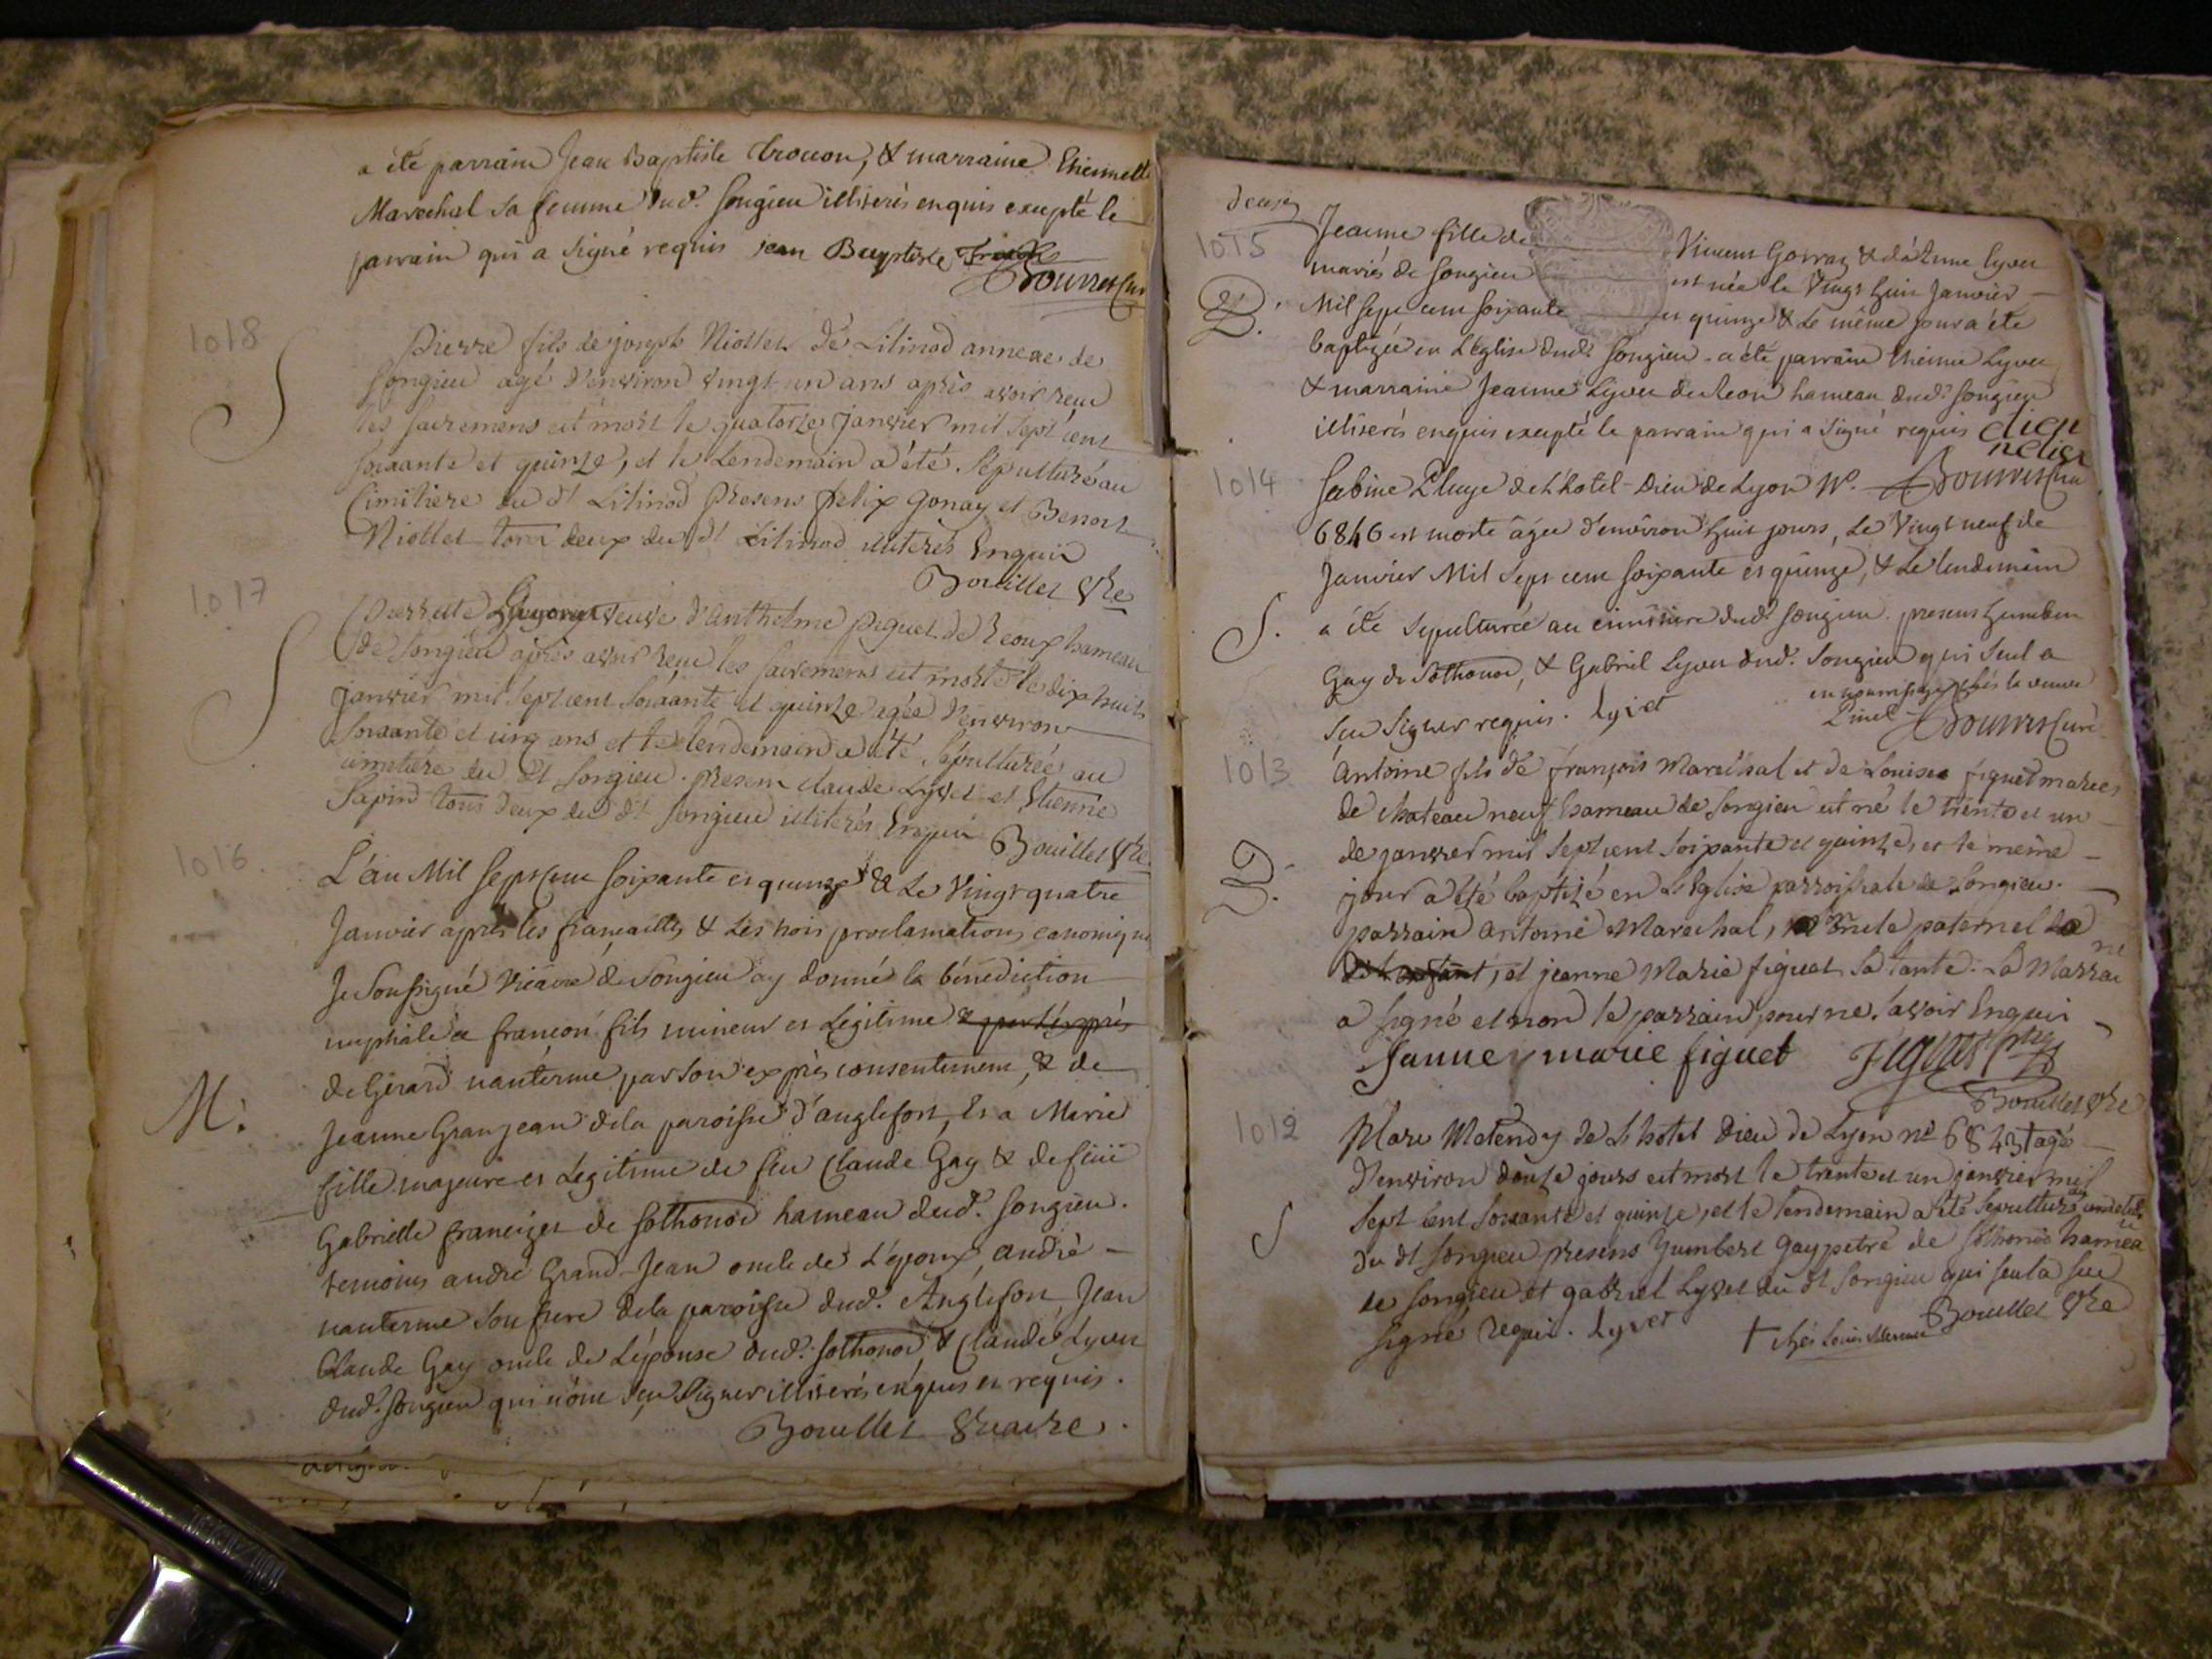 a été parrain Jean Baptiste trocon, & marraine Etiennette
Marechal sa femme dud. Songieu illiterés enquis excepté le
parrain qui a signé requis jean Baptiste
1018
S
Pierre fils de joseph Niollet de Lilinod annexe de
Songieu agé d'environ vingt un ans après avoir reçu
les sacremens est mort le quatorze janvier mil sept cent
soixante et quinze, et le Lendemain a été sépulturé au
Cimitiere du dt Lilinod presens felix gonay et Benoit
Niollet tous deux du dt Lilinod illiterés Enquis
Bouillet Vre
1017
S
Pierrette veuve d'anthelme piquet de hameau
de Songieu après avoir reçu les sacremens est morte le dix huit
janvier mil sept cent soixante et quinze agée d'environ
soixante et cinq ans et le lendemain a été sépulturée au
cimetiere du dt Songieu. presens claude Lyvet et Etienne
Sapin tous deux du dt Songieu illiterés Enquis Bouillet Vre
1016
L'an Mil sept cent soixante et quinze & Le Vingt quatre
Janvier après les fiançailles & les trois proclamations canoniques
Je soussigné Vicaire de Songieu ay donné la bénédiction
nuptiale a françois fils mineur et Légitime & par l'exprès
M.
de Gerard nanterme par son exprès consentement, & de
Jeanne Granjean de la paroisse d'anglefort, et a Marie
fille majeure et Légitime de feu Claude Gay & de feüe
Gabrielle françizet de Sothonod hameau dud. Songieu.
temoins andré Grand-Jean oncle de L'époux, andré
nanterme son frere de la paroisse dud. Anglefort, Jean
Claude Gay oncle de L'épouse dud. Sothonod & Claude Lyvet
dud. Songieu qui n'ont sçu signer illiterés enquis et requis.
Bouillet Vicaire.
deux
1015
Jeanne fille de Vincent Gorraz & d'Anne Lyvet
mariés de Songieu est née le Vingt huit Janvier
B.
Mil sept cent soixante et quinze & Le même jour a été
baptizée en L'église dud. Songieu. a été parrain Etienne Lyvet
& marraine Jeanne Lyvet hameau dud. Songieu
illiterés enquis excepté le parrain qui a signé requis
1014
Sabine Pluye de L'hotel-Dieu de Lyon No.
6846 est morte âgée d'environ huit jours, Le Vingt neuf de
Janvier Mil sept cent soixante et quinze, & Le lendemain
S.
a été sepulturée au cimitiere dud. Songieu. presens humbert
Gay de Sothonod, & Gabriel Lyvet dud. Songieu qui seul a
sçu signer requis. lyvet
en nourrissage chés la veuve
Pinet
1013
Antoine fils de françois Marechal et de Louise figuet mariés
de chateau neuf hameau de Songieu est né le trente et un
B.
de janvier mil sept cent soixante et quinze, et le même
jour a été baptizé en L'Eglise parroissiale de Songieu.
parrain antoine Marechal, oncle paternel
de L'enfant, et jeanne Marie figuet sa tante. La Marraine
a signé et non le parrain pour ne savoir Enquis
Janne marie figuet
Bouillet Vre
1012
Marc Metendy de L'hotel Dieu de Lyon no 6843 † agé
d'environ douze jours est mort le trente et un janvier mil
S
sept cent soixante et quinze, et le lendemain a été sepulturé
du dt Songieu presens humbert gaypetré de Sothonod hameau
de Songieu et gabriel Lyvet du dt Songieu qui seul a sçu
signé requis. lyvet
Bouillet Vre
† chés Louis